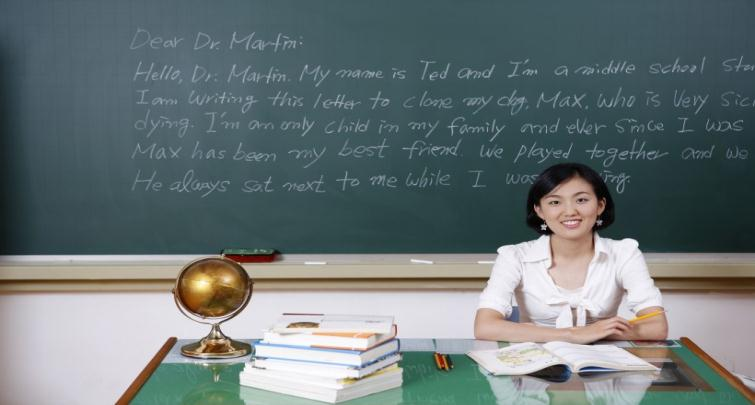 Dear Dr. Martin:
Hello, Dr. Martin. My name is Ted and I'm a middle school
I am writing this letter to clone my dog, Max, who is very
dying. I'm an only child in my family and ever since I was
Max has been my best friend. We played together and we
He always sat next to me while I